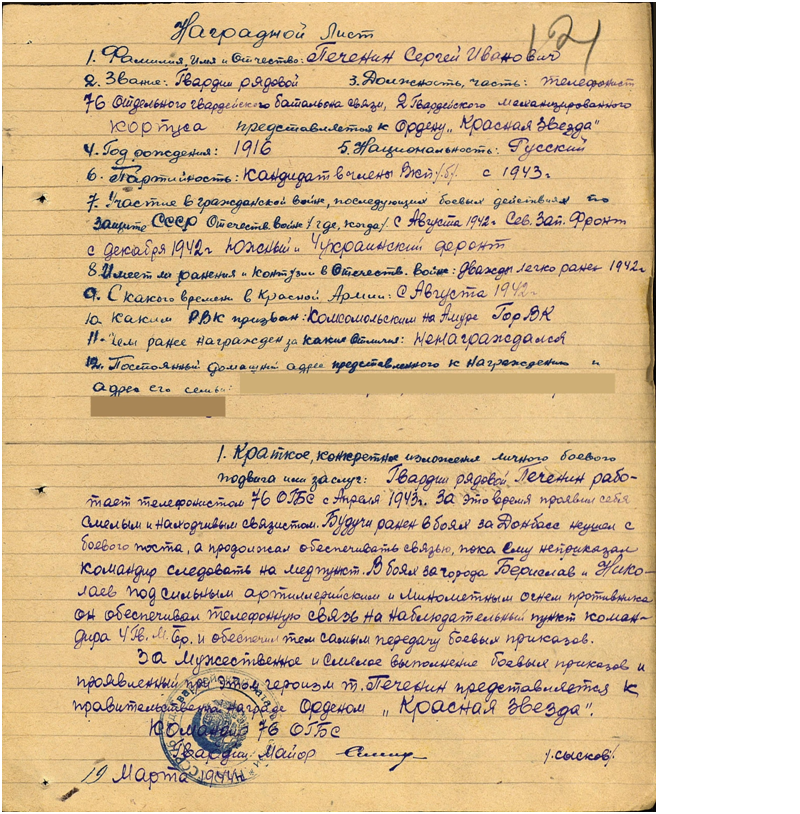 Наградной Лист
121
1. Фамилия, Имя и Отчество: Печенин Сергей Иванович
2. Звание: Гвардии рядовой 3. Должность, часть: телефонист
76 Отдельного гвардейского батальона связи, 2 Гвардейского механизированного
корпуса представляется к Ордену „Красная Звезда"
4. Год рождения: 1916 5. Национальность: Русский
6. Партийность: Кандидат в члены Вкп/б/ с 1943 г
7. Участие в гражданской войн, последующих боевых действиях по
защите СССР Отечеств. войн /где, когда/ с Августа 1942 г Сев. Зап. Фронт
с декабря 1942 г Южный и 4 украинский фронт
8. Имеет ли ранения и контузии в Отечеств. войне: Дважды легко ранен 1942 г
9. С какого времени в Красной Армии: с Августа 1942 г
10. Каким РВК призван: Комсомольским на Амуре ГорВК
11. Чем ранее награжден за какие отличия: ненаграждался
12. Постоянный домашний адрес представленного к награждению и
адрес его семьи:
1. Краткое, конкретное изложения личного боевого
подвига или заслуг: Гвардии рядовой Печенин рабо-
тает телефонистом 76 ОГБС с Апреля 1943 г. За это время проявил себя
смелым и находчивым связистом. Будучи ранен в боях за Донбасс неушол с
боевого поста, а продолжал обеспечивать связью, пока ему неприказал
командир следовать на медпункт. В боях за города Берислав и Нико-
лаев под сильным артиллерийским и минометным огнем противника
он обеспечивал телефонную связь на наблюдательный пункт коман-
дира 4 Гв. М. Бр. и обеспечил тем самым передачу боевых приказов.
За мужественное и смелое выполнение боевых приказов и
проявленный при этом героизм т. Печенин представляется к
правительственной награде Орденом „Красная Звезда".
Командир 76 ОГБС
Гвардии Майор /Сысков/
19 Марта 1944 г